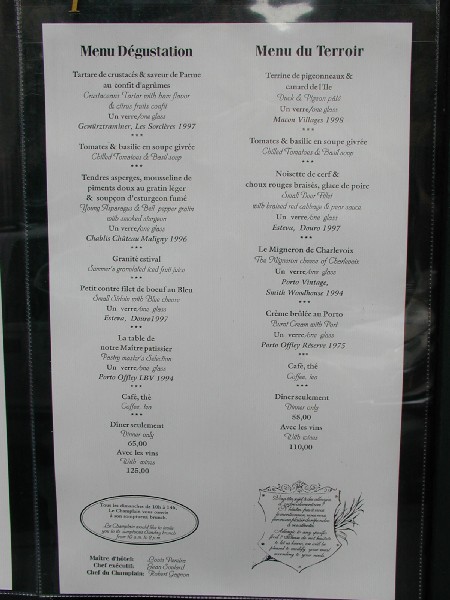 Menu Dégustation
Tartare de crustacés & saveur de Parme
au confit d'agrumes
Crustaceans Tartar with ham flavor
& citrus fruits confit
Un verre/one glass
Gewürztraminer, Les Sorcières 1997
***
Tomates & basilic en soupe givrée
Chilled Tomatoes & Basil soup
***
Tendres asperges, mousseline de
piments doux au gratin léger
& soupçon d'esturgeon fumé
Young Asparagus & Bell pepper gratin
with smoked sturgeon
Un verre/one glass
Chablis Château Maligny 1996
***
Granité estival
Summer's granulated iced fruit juice
***
Petit contre filet de boeuf au Bleu
Small Sirloin with Blue cheese
Un verre/one glass
Esteva, Douro1997
***
La table de
notre Maître patissier
Pastry master's Selection
Un verre/one glass
Porto Offley LBV 1994
***
Café, thé
Coffee, tea
***
Dîner seulement
Dinner only
65,00
Avec les vins
With wines
125,00
Tous les dimanches de 10h à 14h,
Le Champlain vous convie
à son somptueux brunch.
Le Champlain would like to invite
you to its sumptuous Sunday brunch
from 10 a.m. to 2 p.m.
Maître d'hôtel:
Chef exécutif: Jean Soulard
Chef du Champlain:
Menu du Terroir
Terrine de pigeonneaux &
canard de l'Ile
Duck & Pigeon pâté
Un verre/one glass
Macon Villages 1998
***
Tomates & basilic en soupe givrée
Chilled Tomatoes & Basil soup
***
Noisette de cerf &
choux rouges braisés, glace de poire
Small Deer Fillet
with braised red cabbage & pear sauce
Un verre/one glass
Esteva, Douro 1997
***
Le Migneron de Charlevoix
The Migneron cheese of Charlevoix
Un verre/one glass
Porto Vintage,
Smith Woodhouse 1994
***
Crème brûlée au Porto
Burnt Cream with Port
Un verre/one glass
Porto Offley Réserve 1975
***
Café, thé
Coffee, tea
***
Dîner seulement
Dinner only
58,00
Avec les vins
With wines
110,00